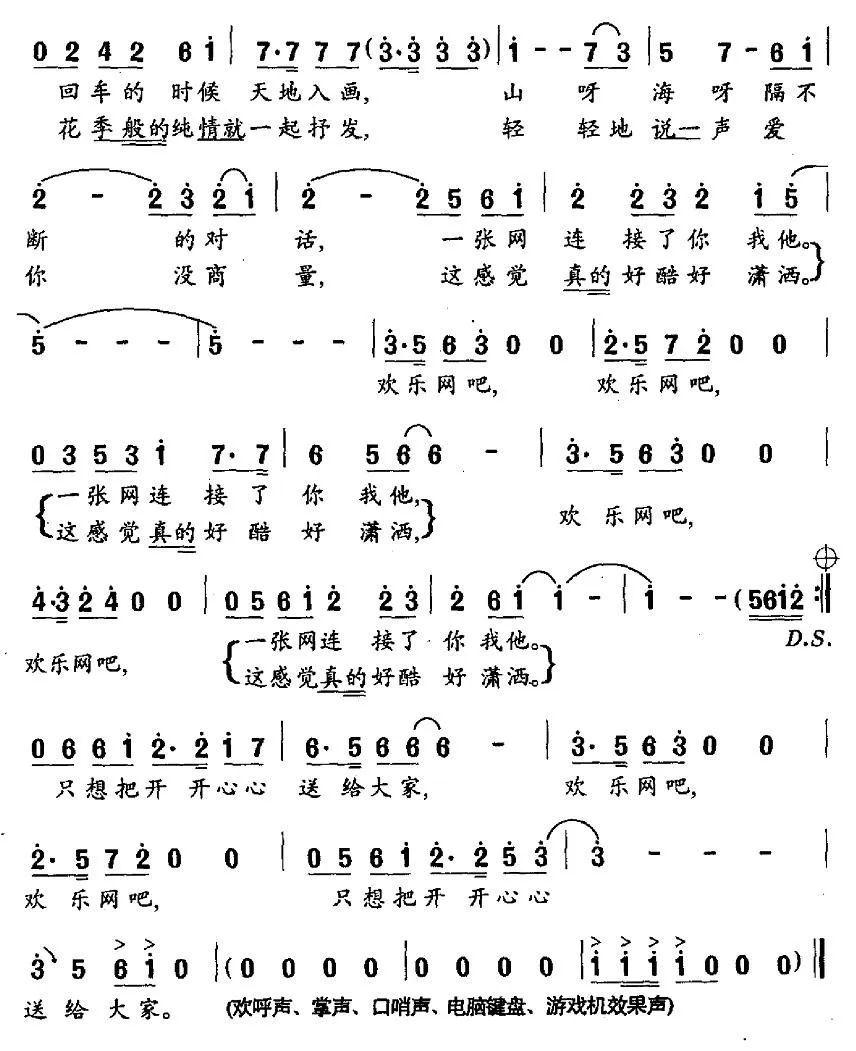 0 2 4 2 6 i | 7·7 7 7 (3·3 3 3) | i - - 7 3 | 5 7 - 6 i |
回车的时候 天地入画, 山 呀 海呀隔不
花季般的纯情就一起抒发, 轻 轻地说一声爱
2 - 2 3 2 i | 2 - 2 5 6 i | 2 2 3 2 i 5 |
断 的对 话, 一张网 连 接了你 我他。
你 没商 量, 这感觉 真的好酷好 潇洒。
5 - - - | 5 - - - | 3·5 6 3 0 0 | 2·5 7 2 0 0 |
欢乐网吧, 欢乐网吧,
0 3 5 3 i 7·7 | 6 5 6 6 - | 3·5 6 3 0 0 |
一张网连 接了 你 我他,
这感觉真的好酷 好 潇洒,
欢 乐网吧,
4·3 2 4 0 0 | 0 5 6 i 2 2 3 | 2 6 i i - | i - - (5 6 i 2 :||
D.S.
一张网连 接了 你 我他。
这感觉真的好酷 好 潇洒。
欢乐网吧,
0 6 6 i 2·2 i 7 | 6·5 6 6 6 - | 3·5 6 3 0 0 |
只想把开 开心心 送 给大家, 欢 乐网吧,
2·5 7 2 0 0 | 0 5 6 i 2·2 5 3 | 3 - - - |
欢 乐网吧, 只想把开 开心心
3 5 6 i 0 | (0 0 0 0 | 0 0 0 0 | i i i i 0 0 0) ||
送给大家。 (欢呼声、掌声、口哨声、电脑键盘、游戏机效果声)